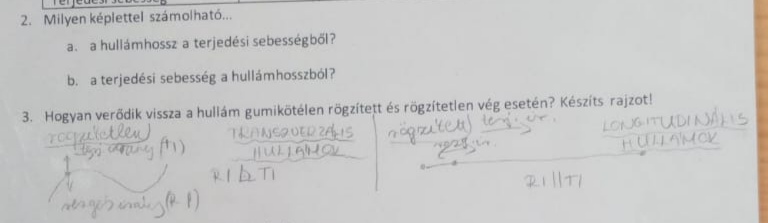 Terjedési sebesség
2. Milyen képlettel számolható...
a. a hullámhossz a terjedési sebességből?
b. a terjedési sebesség a hullámhosszból?
3. Hogyan verődik vissza a hullám gumikötélen rögzített és rögzítetlen vég esetén? Készíts rajzot!
rögzítetlen
irány (TI)
TRANSZVERZÁLIS
HULLÁMOK
RI TI
rezgés irány (RI)
rögzített terj. ir.
rezg. ir.
LONGITUDINÁLIS
HULLÁMOK
RI||TI